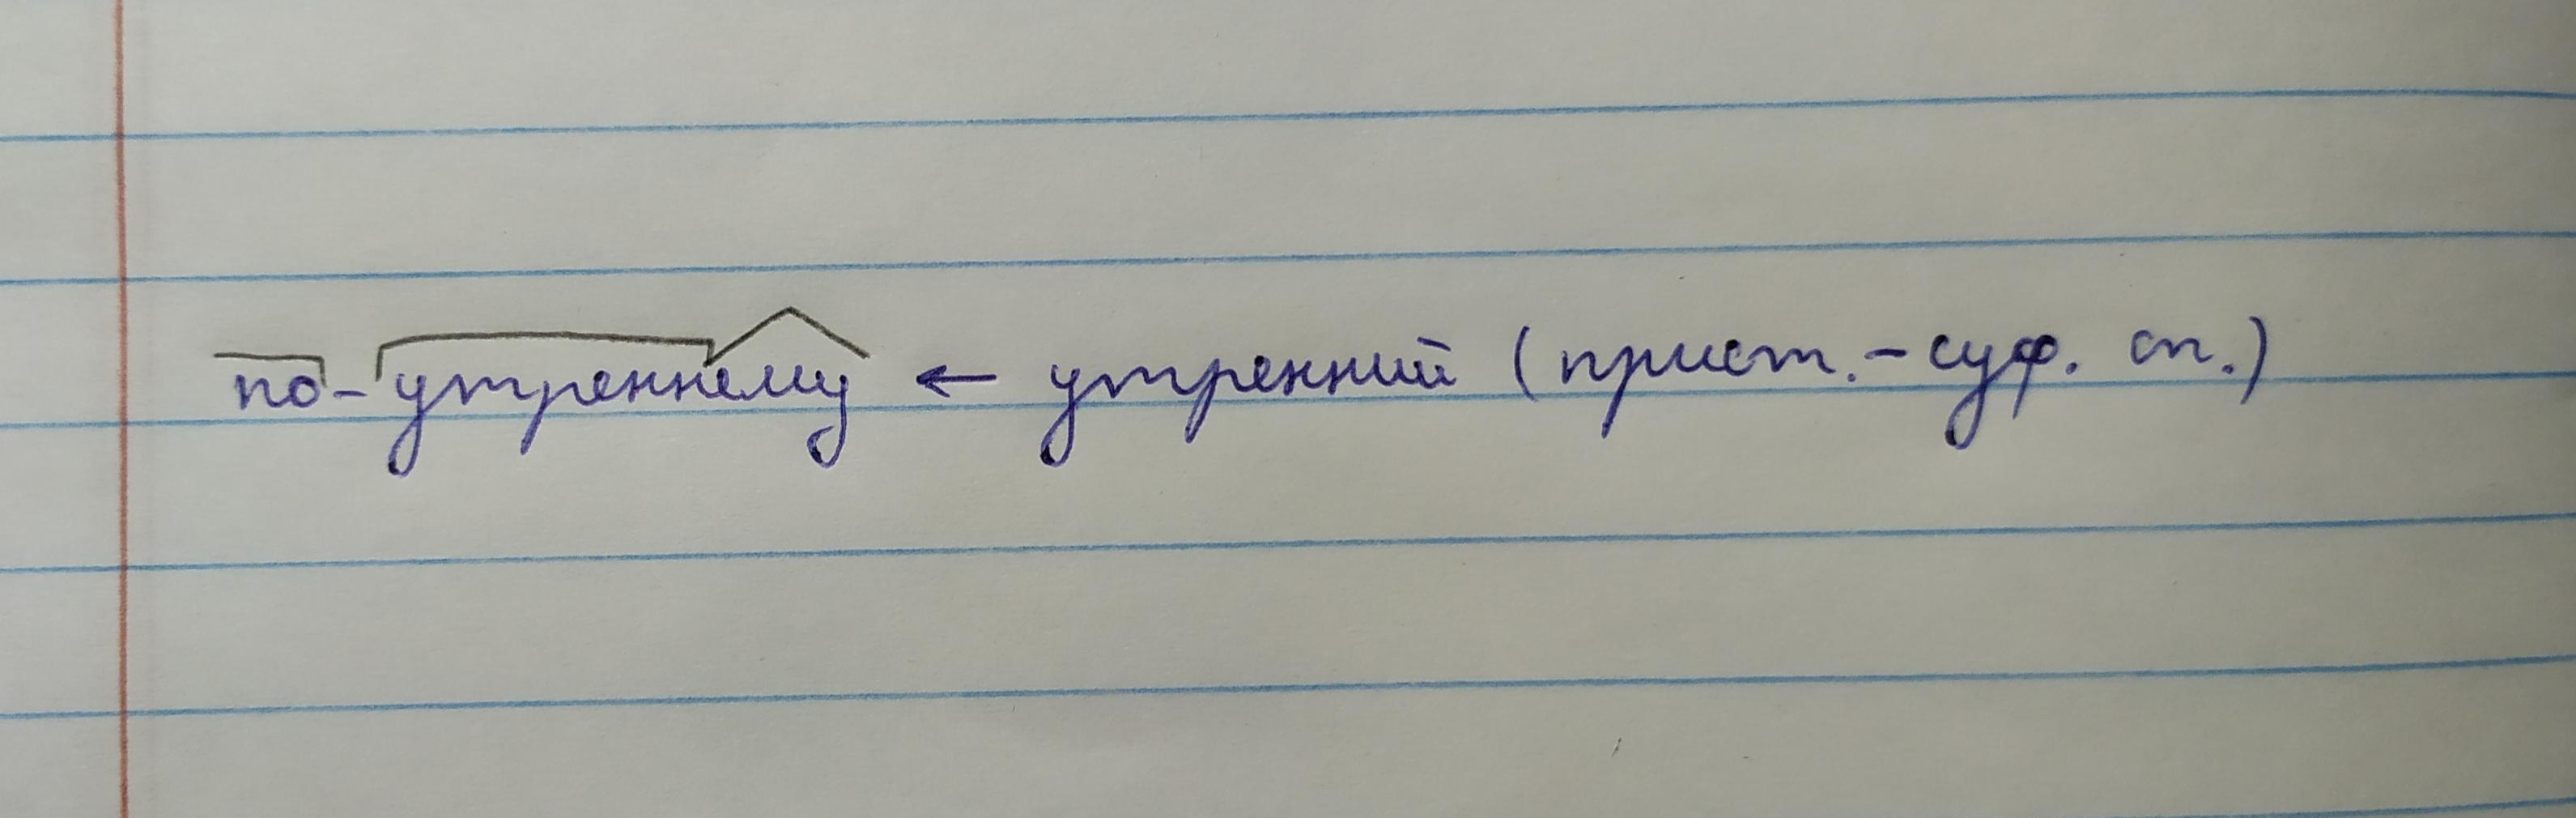 по-утреннему ← утренний (прист.-суф. сп.)